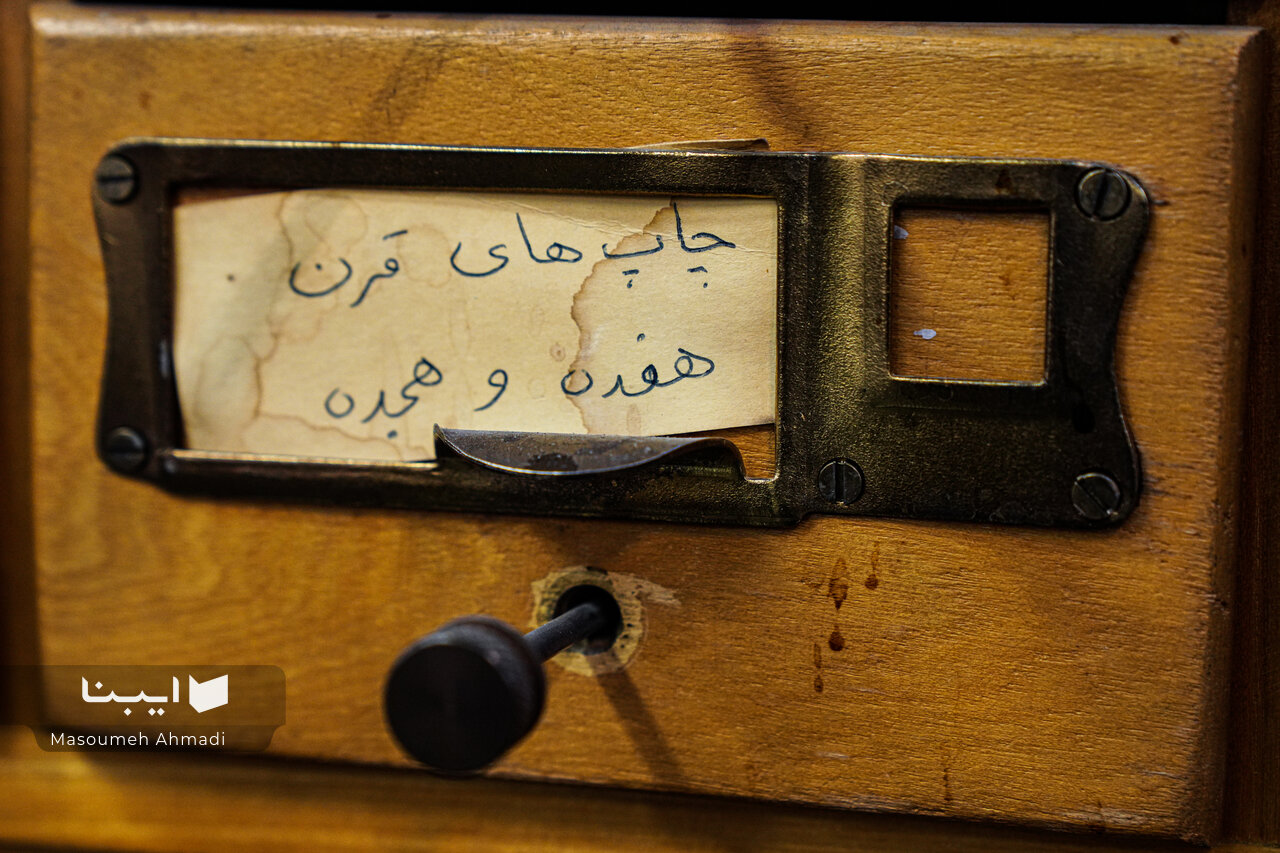 چاپ های قرن
هفده و هجده
ایبنا
Masoumeh Ahmadi